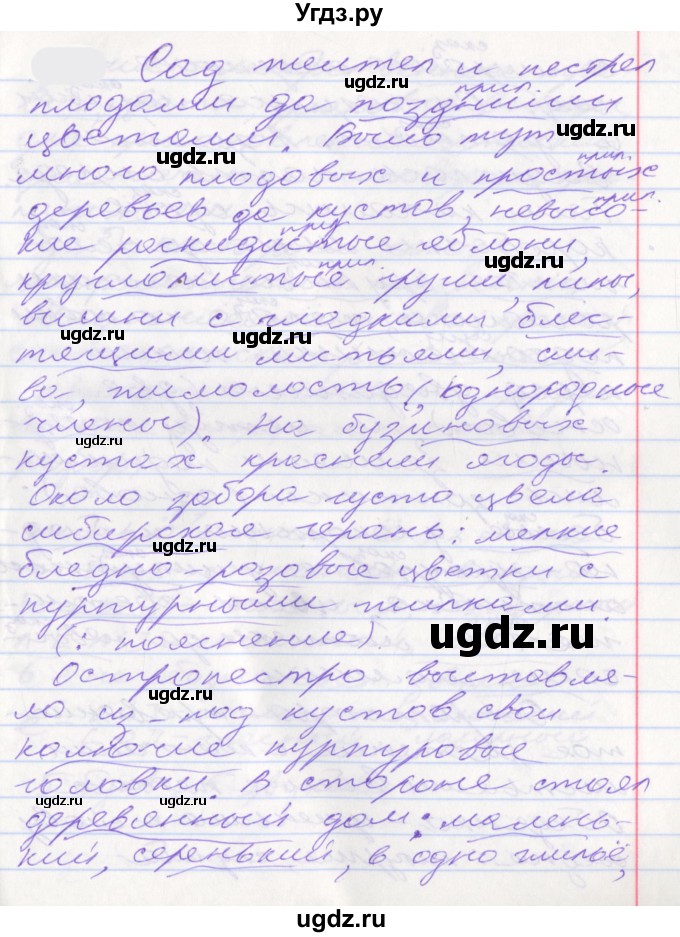 Угдз.ру
Сад желтел и пестрел
ugdz.ru
прил.
плодами да поздними
цветами. Было тут
ugdz.ru
ugdz.ru
прил.
много плодовых и простых
прил.
деревьев да кустов, невысо-
прил.
кие раскидистые яблони,
ugdz.ru
прил.
круглолистые груши, липы,
вишни с гладкими блес-
ugdz.ru
ugdz.ru
ugdz.ru
тящими листьями, сли-
ва, жимолость (однородные
члены). На бузиновых
ugdz.ru
кустах краснели ягоды.
Около забора густо цвела
сибирская герань: мелкие
ugdz.ru
бледно-розовые цветки с
пурпурными жилками.
(: пояснение).
ugdz.ru
Остропестро выставля-
ugdz.ru
ло из-под кустов свои
колючие пурпуровые
головки. В стороне стоял
ugdz.ru
ugdz.ru
деревянный дом: малень-
кий, серенький, в одно жильё,
ugdz.ru
ugdz.ru